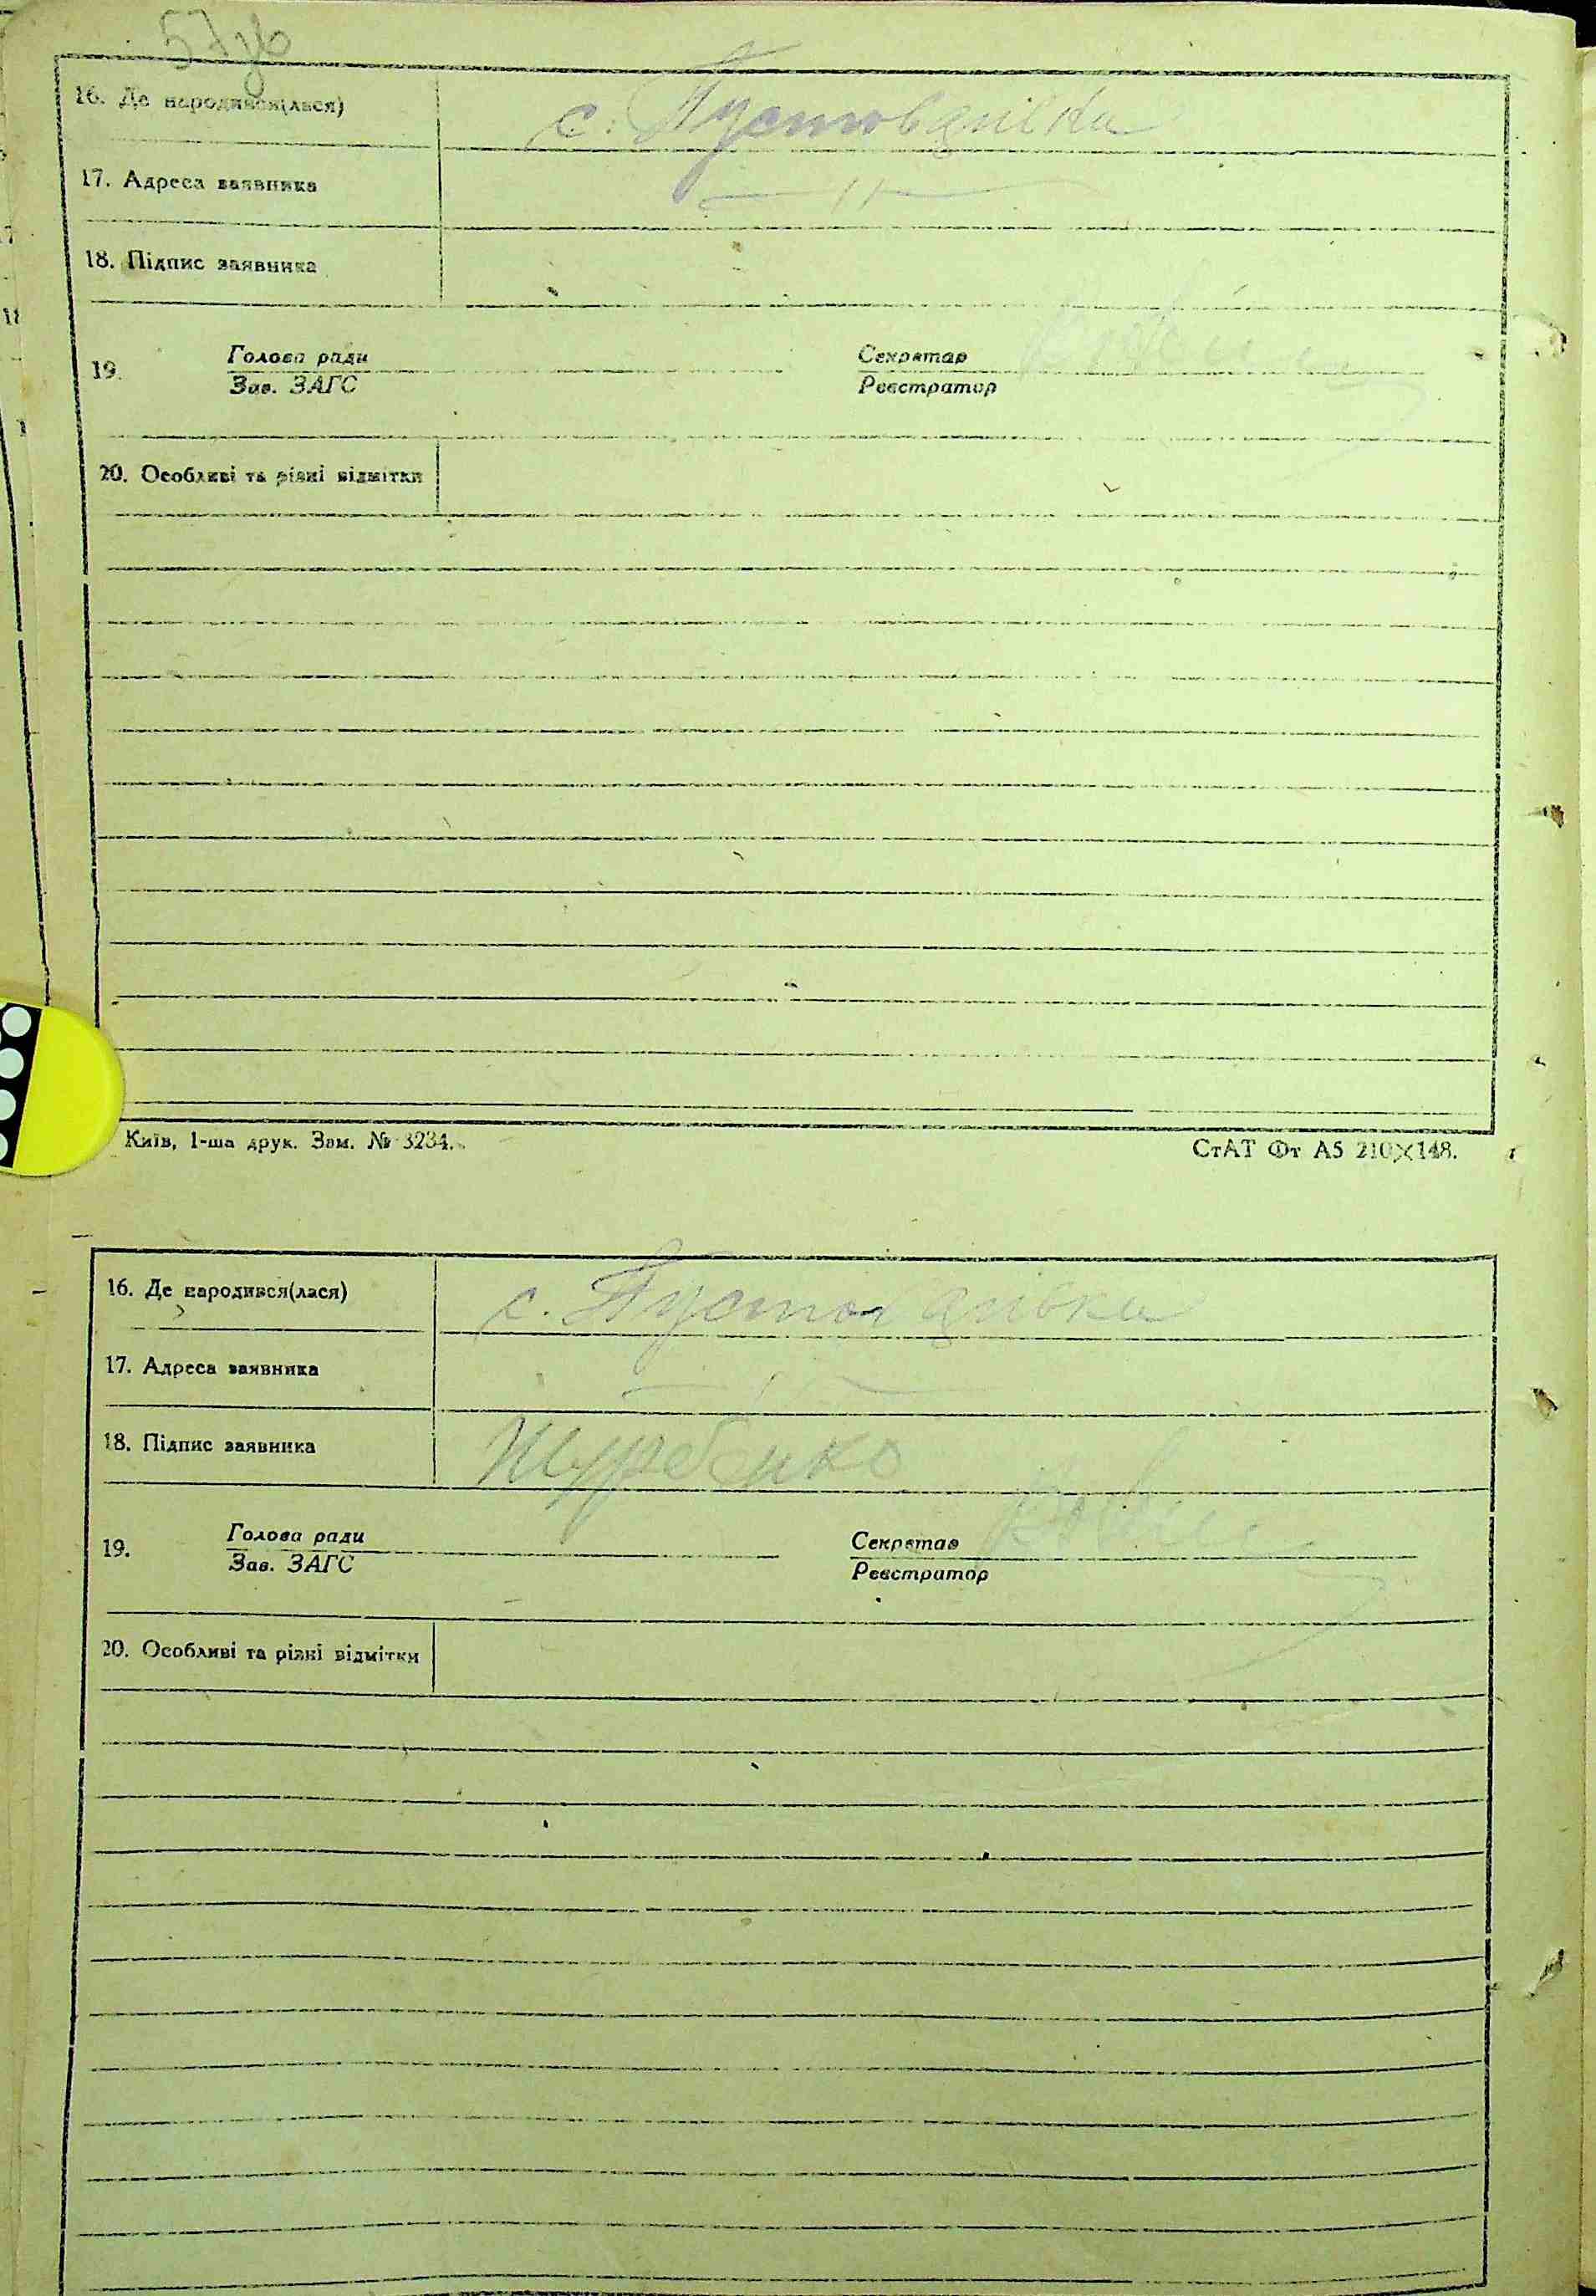 57зв
16. Де народився(лася)
с. Пустовдівка
17. Адреса заявника
— 11 —
18. Підпис заявника
19.
Голова ради
Зав. ЗАГС
Секретар
Реєстратор
20. Особливі та різні відмітки
Київ, 1-ша друк. Зам. № 3234.
СтАТ Фт А5 210×148.
16. Де народився(лася)
с.
17. Адреса заявника
18. Підпис заявника
19.
Голова ради
Зав. ЗАГС
Секретар
Реєстратор
20. Особливі та різні відмітки